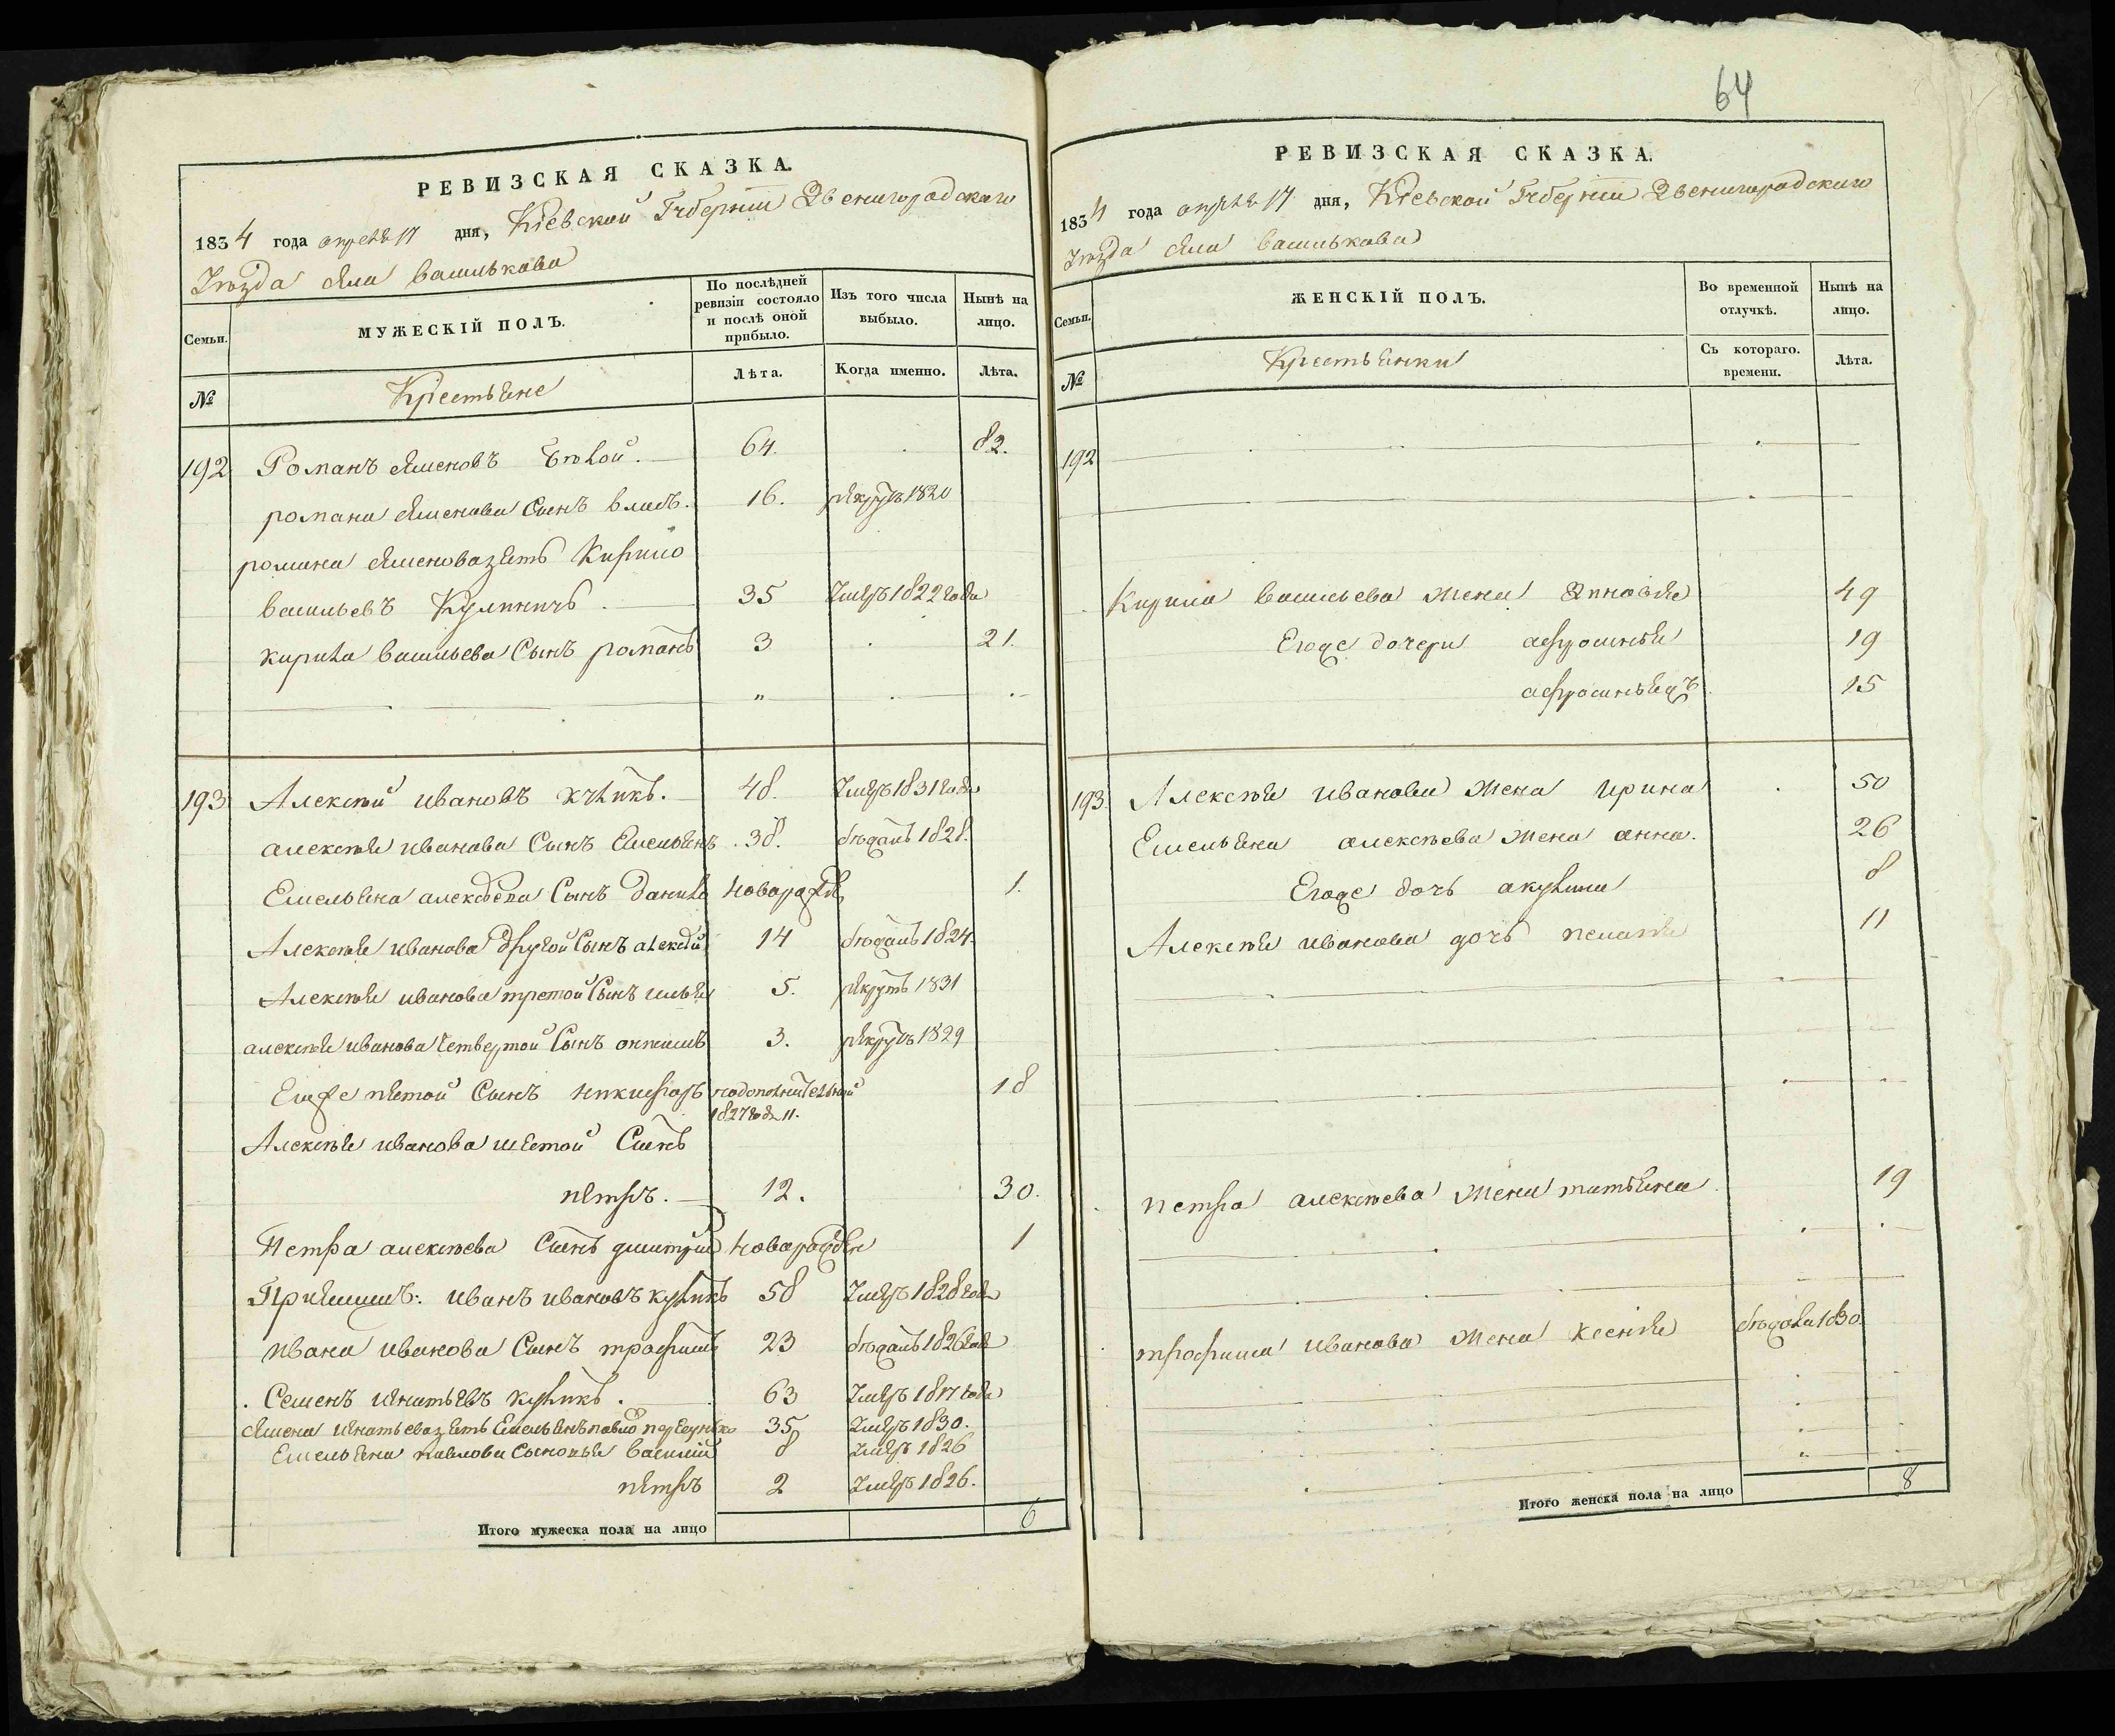 64
РЕВИЗСКАЯ СКАЗКА.
1834 года апреля 17 дня, Кіевской Губерніи Звенигородскаго
Уезда села Василькова
Семьи. МУЖЕСКІЙ ПОЛЪ. По послѣдней ревизіи состояло и послѣ оной прибыло. Изъ того числа выбыло. Нынѣ на лицо.
№ Крестьяне Лѣта. Когда именно. Лѣта.
192 Романъ Семеновъ 64. 82.
романа Семенова Сынъ власъ. 16. рекрутъ 1820
романа Семенова зять Кирило
васильевъ 35 Умеръ 1822 года
кирила васильева Сынъ романъ 3 21.
193 Алексѣй ивановъ куликъ. 48. Умеръ 1831 года
алексѣя иванова Сынъ Емельянъ 38. бѣжалъ 1828.
Емельяна алексѣева Сынъ данило новорожден 1.
Алексѣя иванова другой Сынъ алексѣй 14 бѣжалъ 1824.
Алексѣя иванова третой Сынъ илья 5. рекрутъ 1831
алексѣя иванова четвертой Сынъ 3. рекрутъ 1829
Егоже пятой Сынъ никифоръ подополнителной 1827 года 11. 18
Алексѣя иванова шестой Сынъ
петръ. 12. 30.
Петра алексѣева Сынъ дмитрий новорожден 1
Приемышъ: иванъ ивановъ куликъ 58 Умеръ 1828 года
ивана иванова Сынъ трофимъ 23 бѣжалъ 1826 года
Семенъ игнатьевъ куликъ. 63 Умеръ 1817 года
Семена игнатьева зять Емельянъ павлов 35 Умеръ 1830.
Емельяна павлова Сыновья василій 8 Умеръ 1826
петръ 2 Умеръ 1826.
Итого мужеска пола на лицо 6
РЕВИЗСКАЯ СКАЗКА.
1834 года апреля 17 дня, Кіевской Губерніи Звенигородскаго
Уезда села Василькова
Семьи. ЖЕНСКІЙ ПОЛЪ. Во временной отлучкѣ. Нынѣ на лицо.
№ Крестьянки Съ котораго. времени. Лѣта.
192
Кирила васильева жена Зиновия 49
Егоже дочери афросинья 19
афросинья 15
193 Алексѣя иванова жена ирина 50
Емельяна алексѣева жена анна. 26
Егоже дочь акулина 8
Алексѣя иванова дочь 11
петра алексѣева жена татьяна 19
трофима иванова жена ксения бѣжала 1830.
Итого женска пола на лицо 8